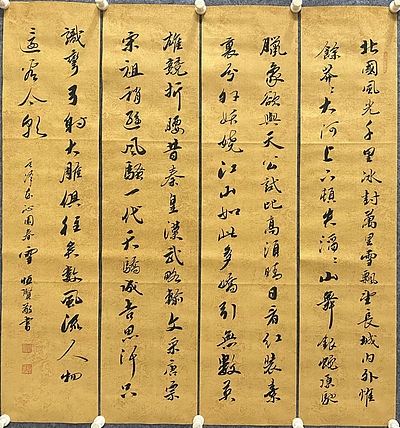 北國風光千里冰封萬里雪飄望長城内外惟
餘莽〻大河上下頓失滔〻山舞銀蛇原馳
臘象欲與天公試比高須晴日看紅裝素
裹分外妖嬈江山如此多嬌引無數英
雄競折腰昔秦皇漢武略輸文采唐宗
宋祖稍遜風騷一代天驕成吉思汗只
識彎弓射大雕俱往矣數風流人物
還看今朝
毛澤東沁園春雪 恒賢敬書